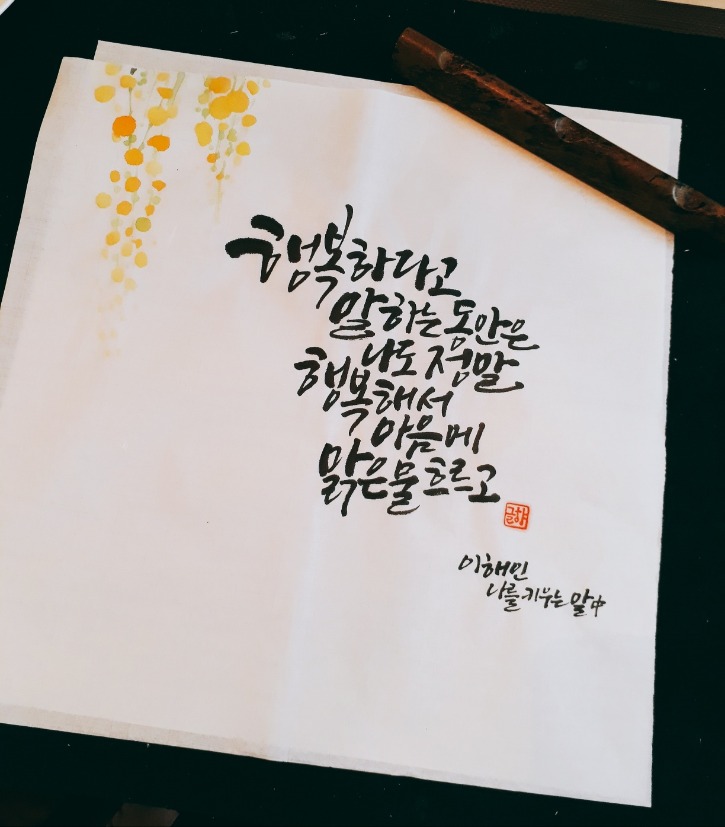 행복하다고
말하는 동안은
나도 정말
행복해서
마음에
맑은 물 흐르고
이해인
나를 키우는 말 中